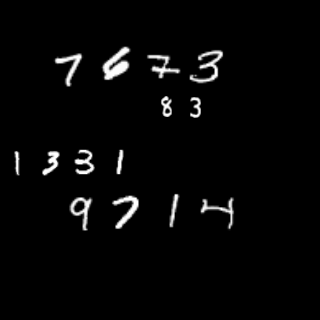 7673
83
1331
9714